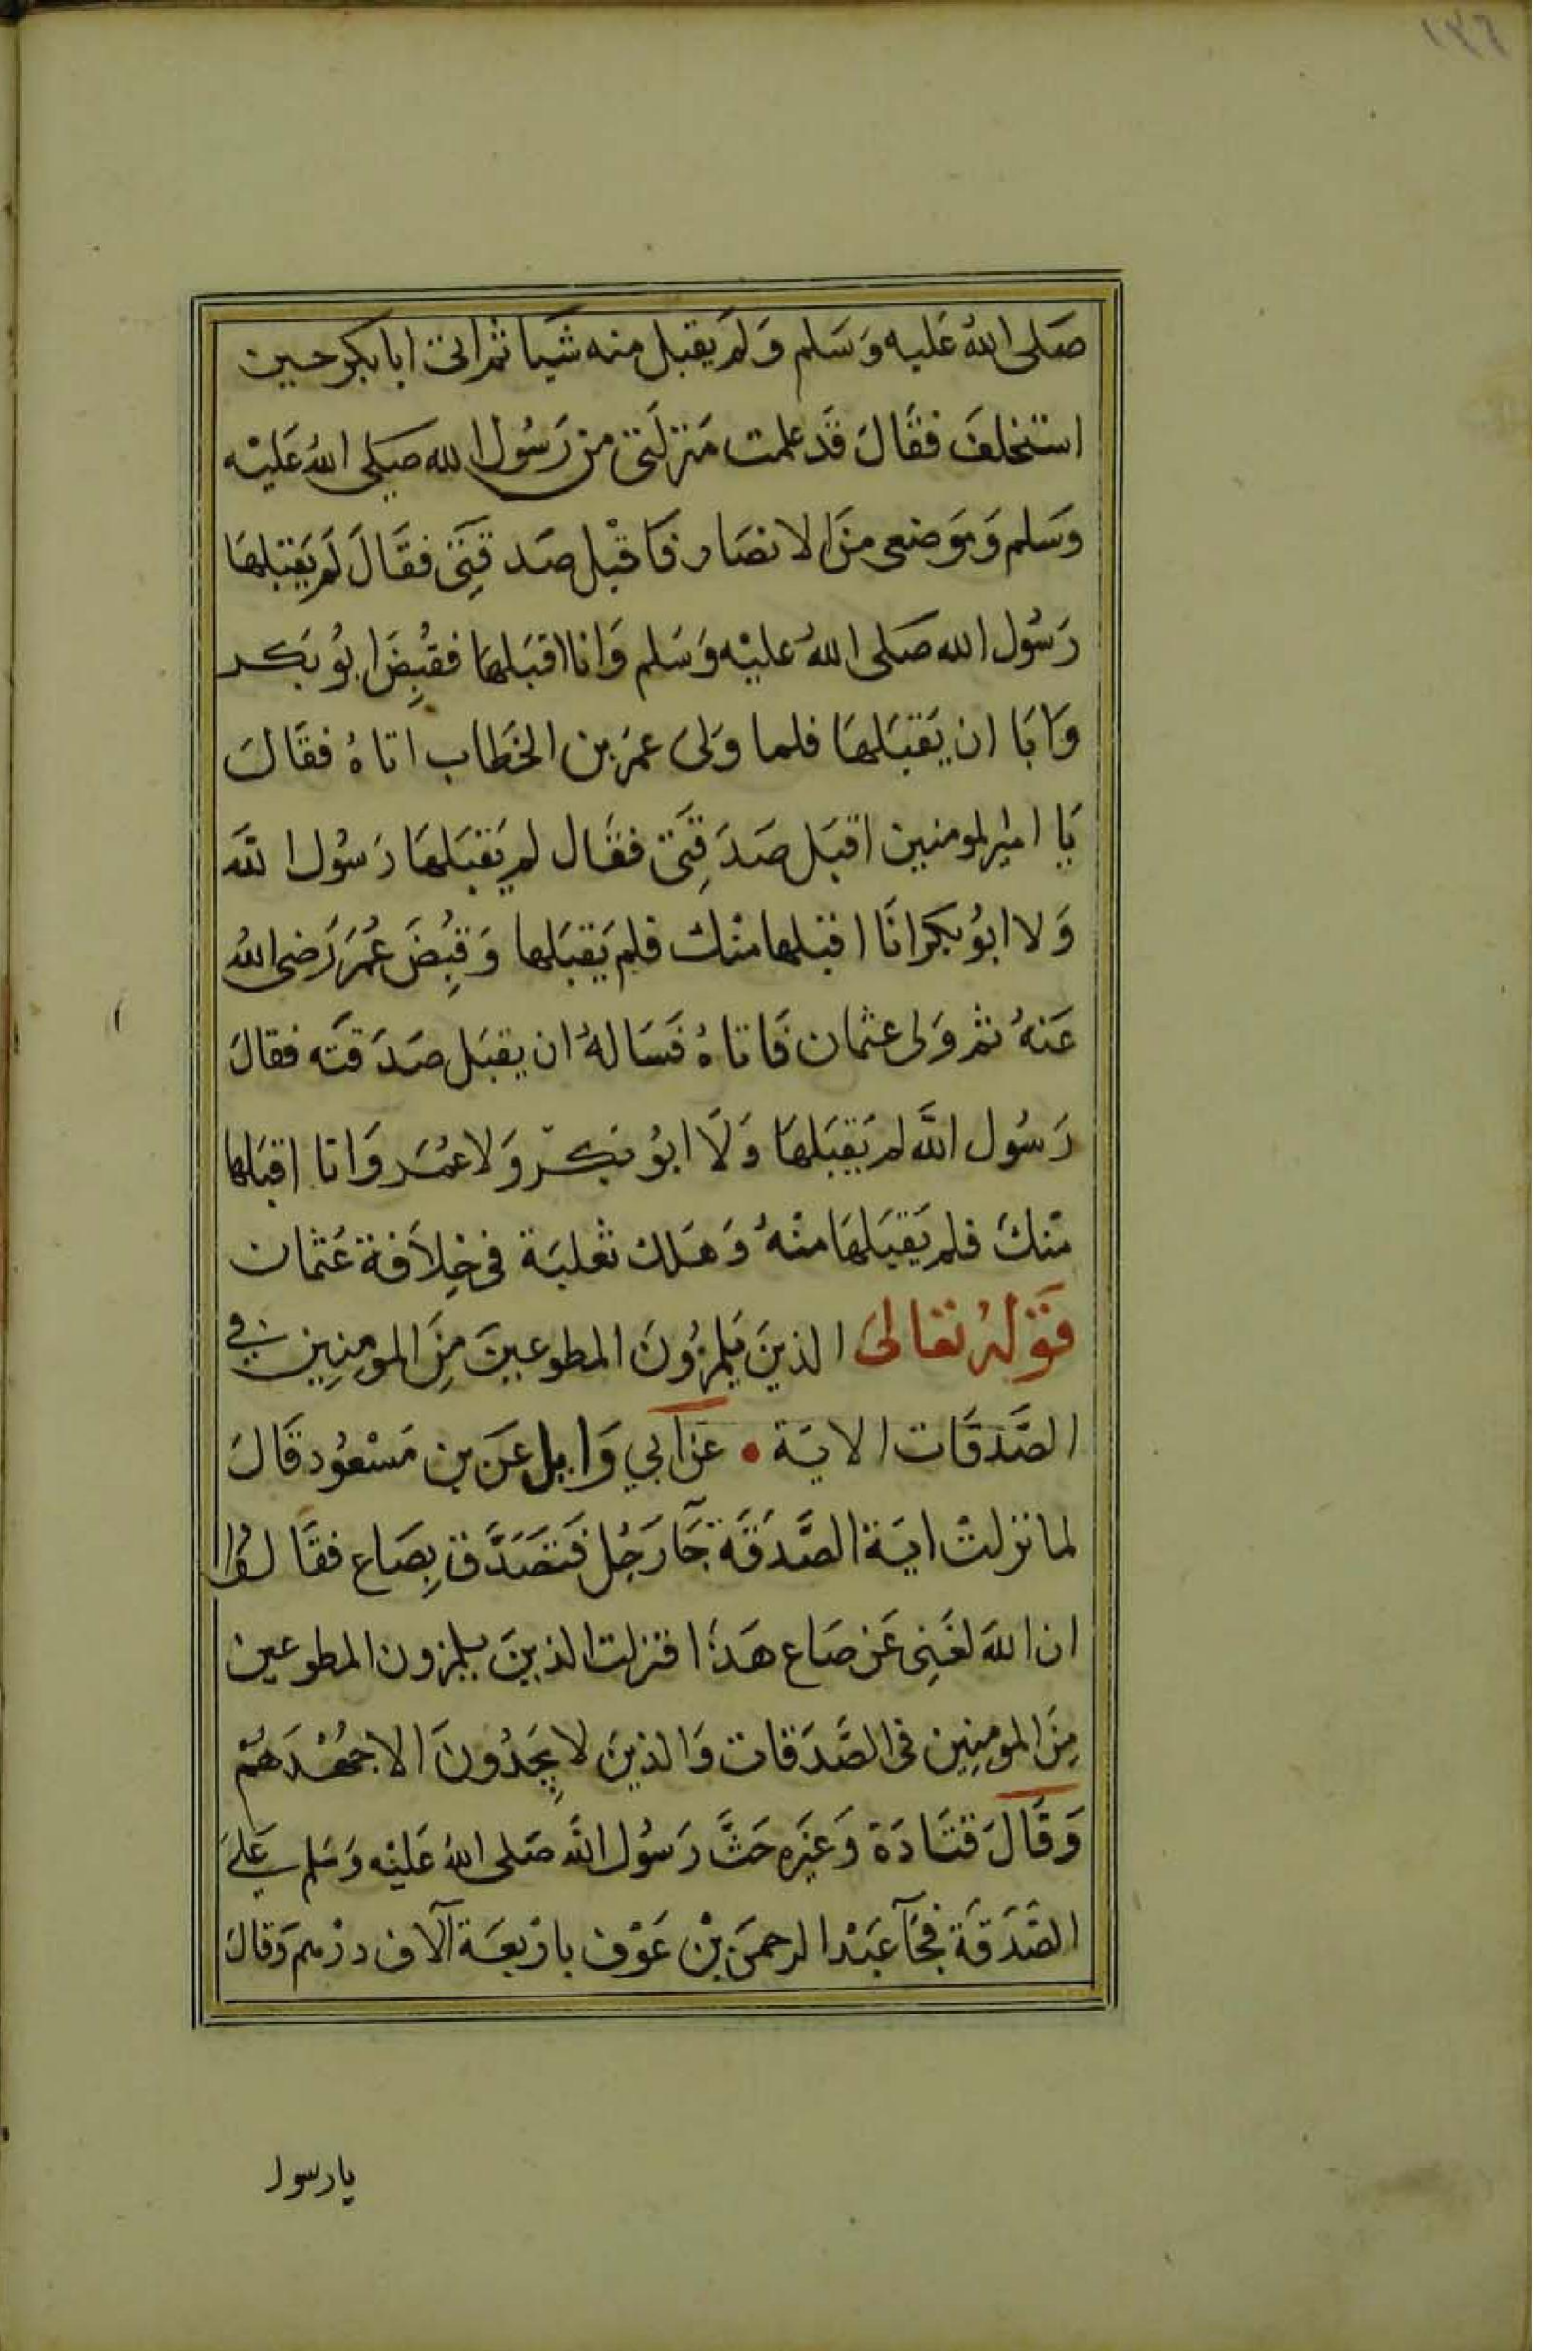 ١٣٦
صَلى اللهُ عَليه وَسَلم وَلم يقبل منه شَيا ثم اتى ابا بكر حين
استخلفَ فقَالَ قَد علمت مَنزلَتى من رَسُول الله صَلى اللهُ عَليْه
وَسَلم وَمَوضعى منَ الانصَار فَاقْبل صَدقتِى فقَالَ لَم يَقبَلهَا
رَسُول الله صَلى اللهُ عليْه وَسَلم وَانا اقبَلهَا فقُبِضَ ابُو بَكر
وَابَا ان يَقبَلهَا فلما وَلىَ عمَر بن الخَطاب اتاهُ فقَالَ
يَا امير المومنين اقبَل صَدَقِتَى فقَال لم يَقبَلهَا رَسُول الله
وَلا ابُو بكر انَا اقبلها منْك فلم يَقبَلها وَقبِضَ عُمَر رَضى اللهُ
عَنهُ ثم وَلى عثمان فَاتاهُ فَسَالهُ ان يقبَل صَدَقتَه فقالَ
رَسُول الله لم يَقبَلهَا وَلَا ابُو بَكر وَلا عمُر وَانا اقبَلها
منْكَ فلم يَقبَلهَا منْهُ وَهَلك ثعلبَة فى خِلاَفة عُثمان
قَوْلهُ تعَالىَ الذينَ يَلمزُونَ المطوعينَ مِنَ المومنِين في
الصَّدَقَات الايَة • عَن ابي وَايل عَن بن مَسْعُود قَالَ
لما نزلتْ ايَة الصَّدَقَة جَآ رَجُل فَتصَدَّق بِصَاع فقَالُوا
ان اللهَ لغَنِى عَن صَاع هَذا فنزلت الذينَ يلمزون المطوعين
مِنَ المومنِين فى الصَّدَقات وَالذينَ لا يجَدُونَ الا جُهْدَهُمْ
وَقَالَ قتَادَة وَغيَره حَثَّ رَسُول الله صَلى اللهُ عَليْه وَسَلم عَليَ
الصَّدَقَة فجَآ عَبْد الرحمَن بْن عَوْف بارْبعَة آلاف درْهم وَقالَ
يا رسول